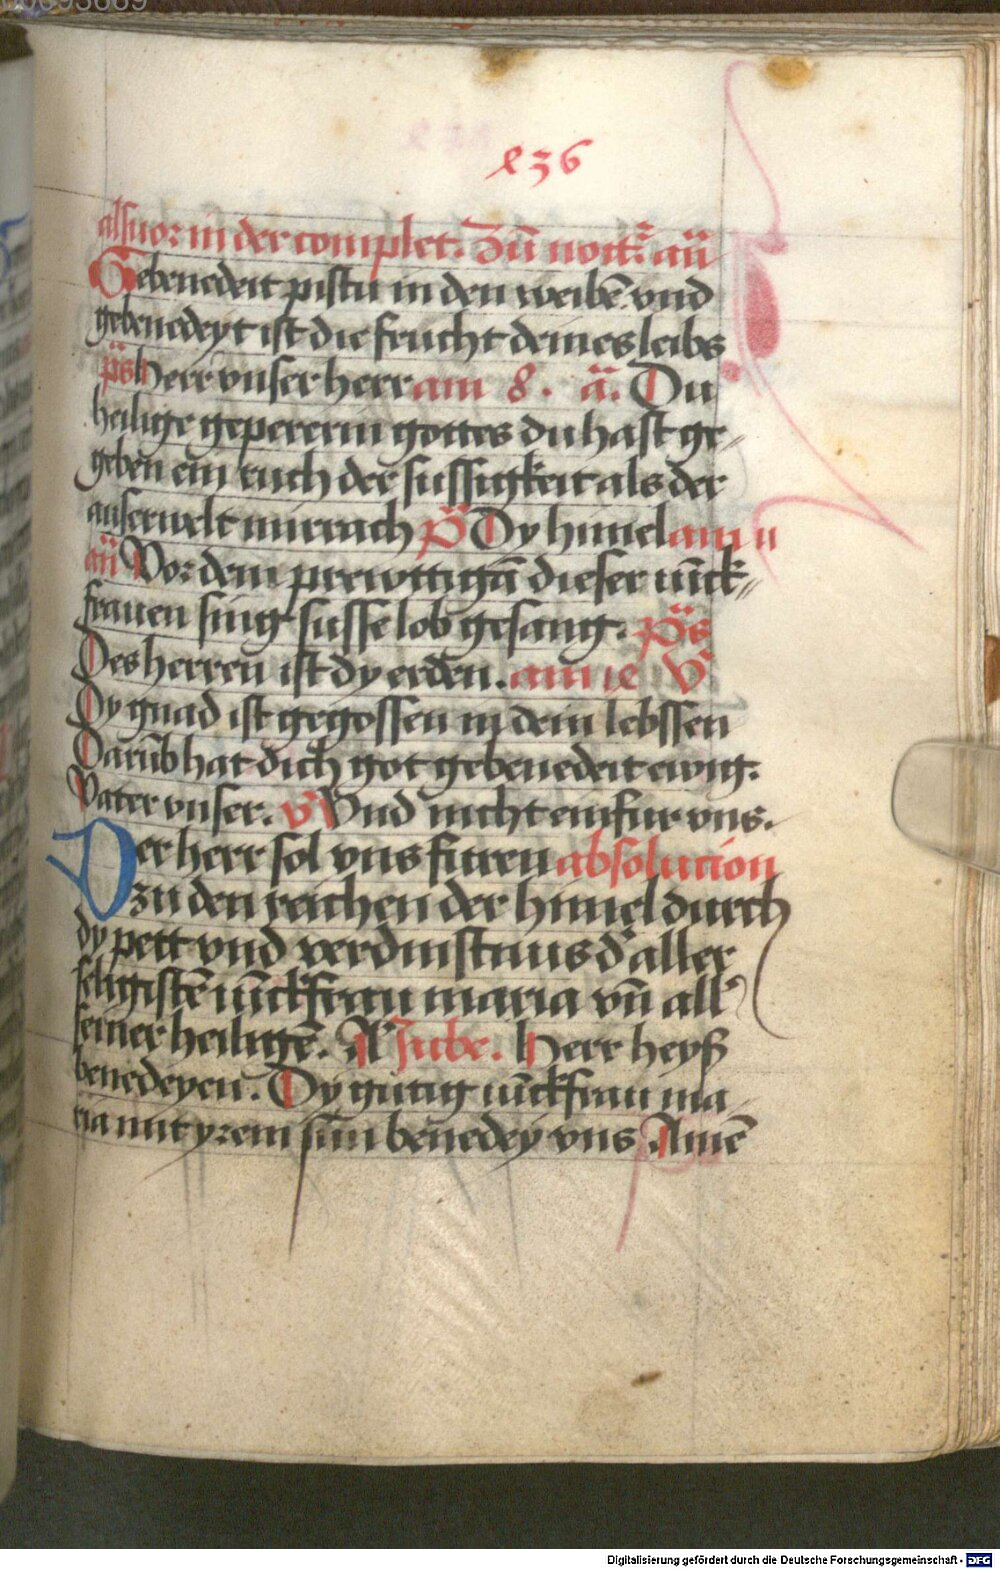 236
alsuor in der complet. Zu᷑ nott᷑ an̈
Gebenedeit pistu in den weibē. vnd
gebenedeyt ist die frucht deines leibs
ps̈ herr vnser herr am 8. ä. Du
heilige gepererin gottes du hast ge-
geben ein ruch der sussigkeit als der
auserwelt mirrach ps̈ Dy himel am 11
an̈ Vor dem prewttigā dieser iūck-
frauen sing susse lob gesang. ps̈
Des herren ist dy erden. am 12 V
Dy gnad ist gegossen in dein lebssen
Darūb hat dich got gebenedeit ewig.
Vater vnser. v Vnd nicht einfur vns.
Der herr sol vns füren absolucion
zu den reichen der himel durch
dy pett vnd verdinstnus d' aller
seligistē iūckfrau maria vn̄ all'
seiner heiligē. A Jube. Herr heyß
benedeyen. Dy gütig iūckfrau ma
ria mit yrem sūn benedey vns Amē
Digitalisierung gefördert durch die Deutsche Forschungsgemeinschaft - DFG